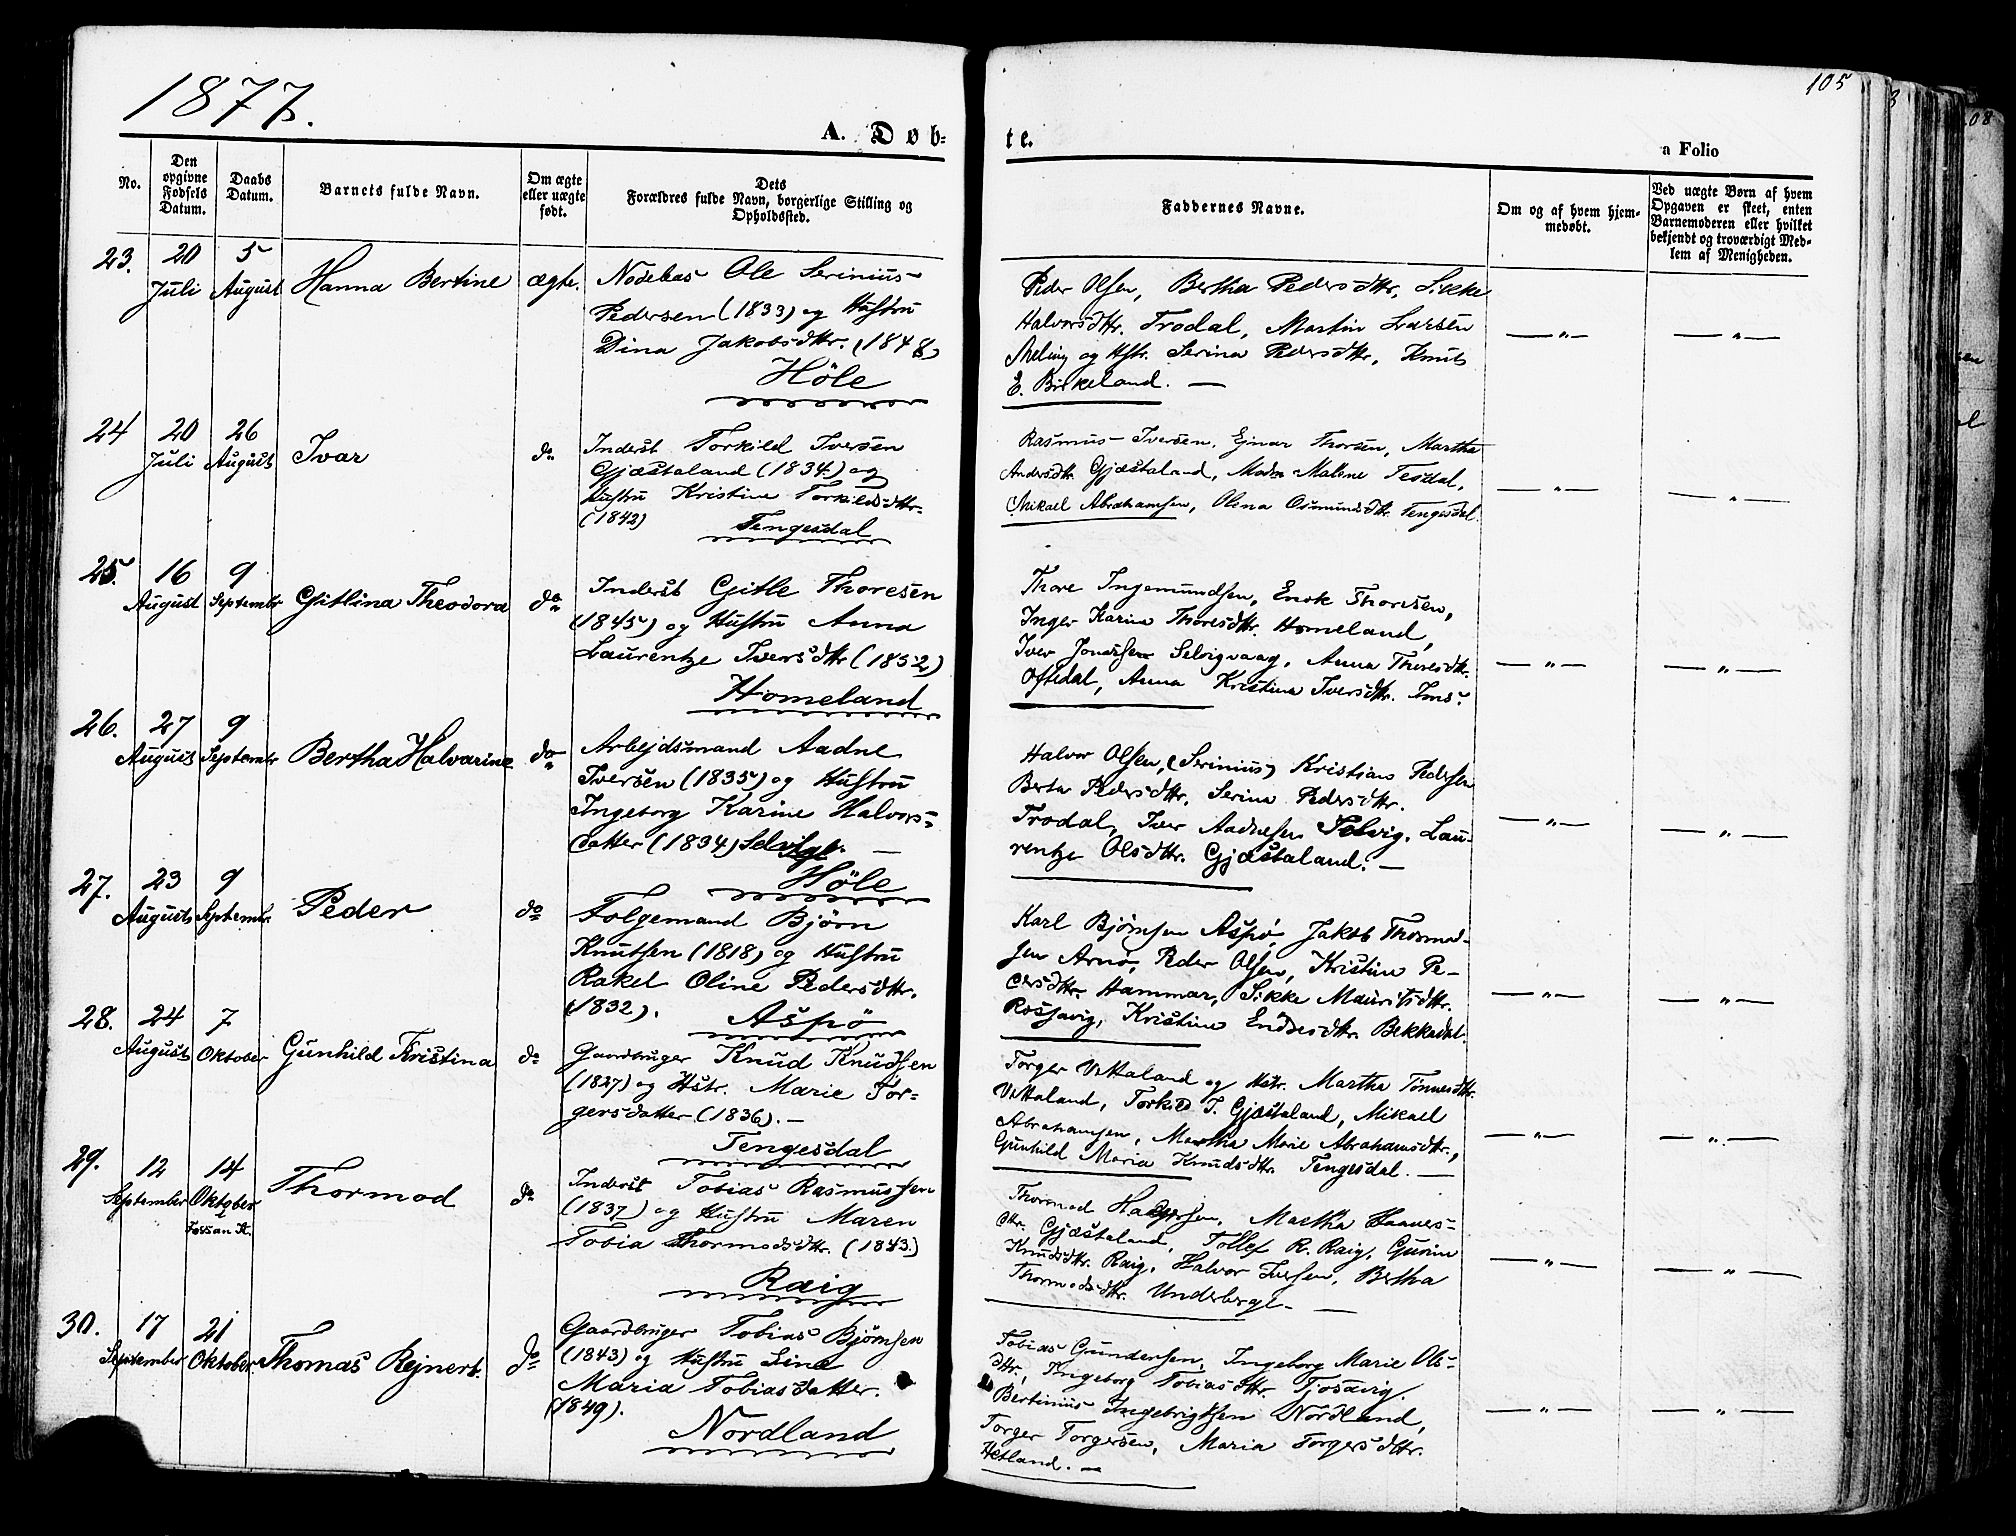 1877.
105
A. Døb-
te.
a Folio
No.
Den opgivne Fødsels Datum.
Daabs Datum.
Barnets fulde Navn.
Om ægte eller uægte født.
Dets Forældres fulde Navn, borgerlige Stilling og Opholdssted.
Faddernes Navne.
Om og af hvem hjem-
medøbt.
Ved uægte Børn af hvem
Opgaven er skeet, enten
Barnemoderen eller hvilket
bekjendt og troværdigt Med-
lem af Menigheden.
23.
20 Juli
5 August
Hanna Bertine
ægte.
Nodebas Ole Serinius
Pedersen (1833) og Hustru
Dina Jakobsdttr. (1848)
Höle
Peder Olsen, Bertha Pedersdttr, Sikke
Halvorsdttr. Trodal, Martin Larsen
Meling og Hstr. Serina Pedersdttr, Knut
E. Birkeland. —
— " —
— " —
24
20 Juli
26 August
Ivar
do
Inderst Torkild Iversen
Gjæstaland (1834) og
Hustru Kristine Torkildsdttr.
(1842)
Tengesdal
Rasmus Iversen, Ejnar Thorsen, Martha
Andersdttr. Gjæstaland, Madm Malene Tesdal,
Mikael Abrahamsen, Olina Osmundsdttr. Tengesdal
— " —
— " —
25.
16 August
9 Septembr
Gitlina Theodora
do
Inderst Gitle Thoresen
(1845) og Hustru Anna
Laurentze Iversdttr (1852)
Homeland
Thore Ingemundsen, Enok Thoresen,
Inger Karina Thoresdttr. Homeland,
Iver Jonassen Selvigvaag, Anna Thoresdttr.
Oftedal, Anna Kristina Iversdttr. Ims.
— " —
— " —
26.
27 August
9 Septembr
Bertha Halvarine
do
Arbejdsmand Aadne
Iversen (1835) og Hustru
Ingeborg Karine Halvors-
datter (1834) Selvigt. —
Höle
Halvor Olsen, (Serinius) Kristian Pedersen
Berta Pedersdttr, Serina Pedersdttr.
Trodal, Iver Aadnesen Selvig, Lau-
rentze Olsdttr. Gjæstaland. —
— " —
— " —
27.
23 August
9 Septembr.
Peder
do
Folgemand Bjørn
Knutsen (1818) og Hustru
Rakel Oline Pedersdttr.
(1832).
Aspö
Karl Bjørnsen Aspö, Jakob Thormod-
sen Arnø, Peder Olsen, Kristine Pe-
dersdttr Hammar, Sikke Mauritsdttr.
Rossavig, Kristine Endresdttr Bekkedal.
— " —
— " —
28.
24 August
7 Oktober
Gunhild Kristina
do
Gaardbruger Knud Knudsen
(1827) og Hstr. Marie Tor-
gersdatter (1836). —
Tengesdal
Torger Vittaland og Hstr. Martha Tönnesdttr.
Vittaland, Torkild I. Gjæstaland, Mikael
Abrahamsen, Martha Marie Abrahamsdttr.,
Gunhild Maria Knudsdttr. Tengesdal. —
— " —
— " —
29.
12 September
14 Oktober
i Forsan K.
Thormod
do
Inderst Tobias Rasmussen
(1837) og Hustru Maren
Tobia Thormodsdttr. (1843.)
Raig
Thormod Hansen, Martha Haaves-
dttr. Gjæstaland, Tollef R. Raig, Gurine
Knudsdttr. Raig, Halvor Iversen, Bertha
Thormodsdttr. Underberge. —
— " —
— " —
30.
17 September
21 Oktober.
Thomas Rejnert.
do
Gaardbruger Tobias Bjørnsen
(1843) og Hustru Sina
Maria Tobiasdatter.
(1849).
Nordland
Tobias Gundersen, Ingeborg Marie Ols-
dttr., Ingeborg Tobiasdttr. Tjosavig,
Bertinius Ingebrigtsen Nordland,
Torger Torgersen, Maria Torgersdttr.
Hetland. —
— " —
— " —